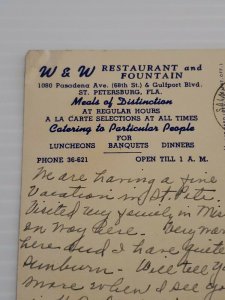 W & W RESTAURANT and
FOUNTAIN
1080 Pasadena Ave. (68th St.) & Gulfport Blvd.
ST. PETERSBURG, FLA.
Meals of Distinction
AT REGULAR HOURS
A LA CARTE SELECTIONS AT ALL TIMES
Catering to Particular People
FOR
LUNCHEONS BANQUETS DINNERS
PHONE 36-621 OPEN TILL 1 A. M.
are having a fine
Vacation in St. Pete.
Visited my family in Mis
on way here. Very war
here and I have quite
sunburn. Will tell yo
more when I see yo